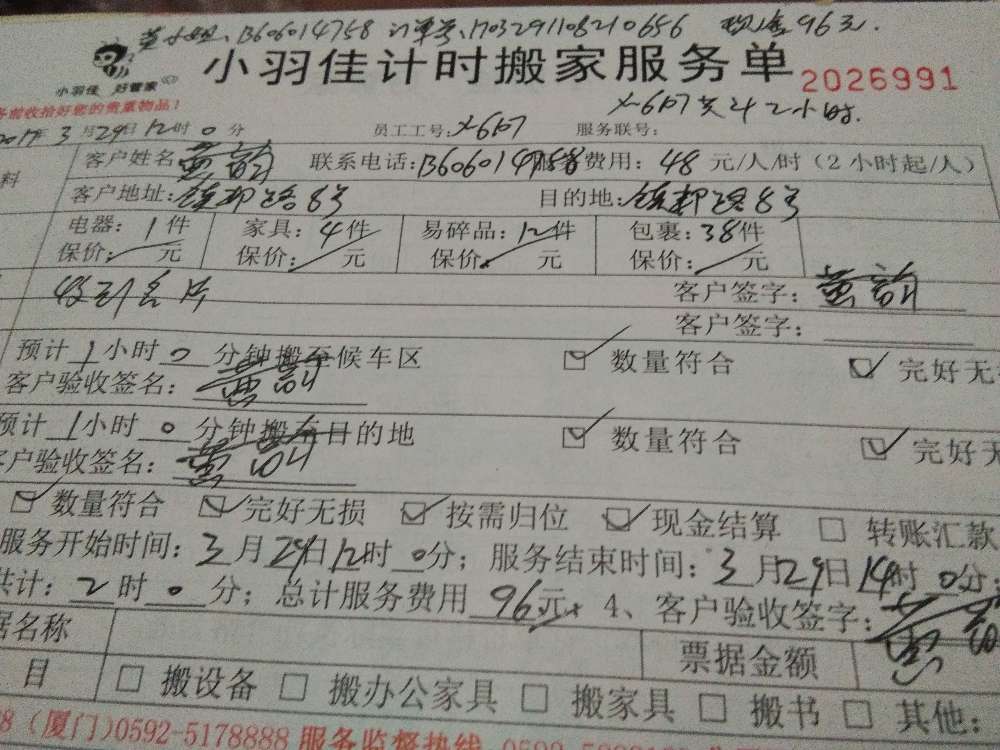 黄小姐:13606014758 订单号:1703291108210656 现金96元.
小羽佳计时搬家服务单 2026991
小羽佳 好管家
务前收拾好您的贵重物品!
X-6107共计2小时.
2017年3月29日12时0分 员工工号:X-6107 服务联号:
料
客户姓名 黄韵 联系电话:13606014758 服务费用:48元/人/时(2小时起/人)
客户地址:镇邦路8号 目的地:镇邦路8号
电器:1件 家具:4件 易碎品:12件 包裹:38件
保价: 元 保价: 元 保价: 元 保价: 元
收到名片 客户签字:黄韵
客户签字:
预计1小时0分钟搬至候车区 数量符合 完好无
客户验收签名:黄韵
预计1小时0分钟搬至目的地 数量符合 完好无
客户验收签名:黄韵
数量符合 完好无损 按需归位 现金结算 转账汇款
服务开始时间:3月29日12时0分;服务结束时间:3月29日14时0分
共计:2时0分;总计服务费用96元 4、客户验收签字:黄韵
据名称 票据金额
目 搬设备 搬办公家具 搬家具 搬书 其他:
8(厦门)0592-5178888 服务监督热线